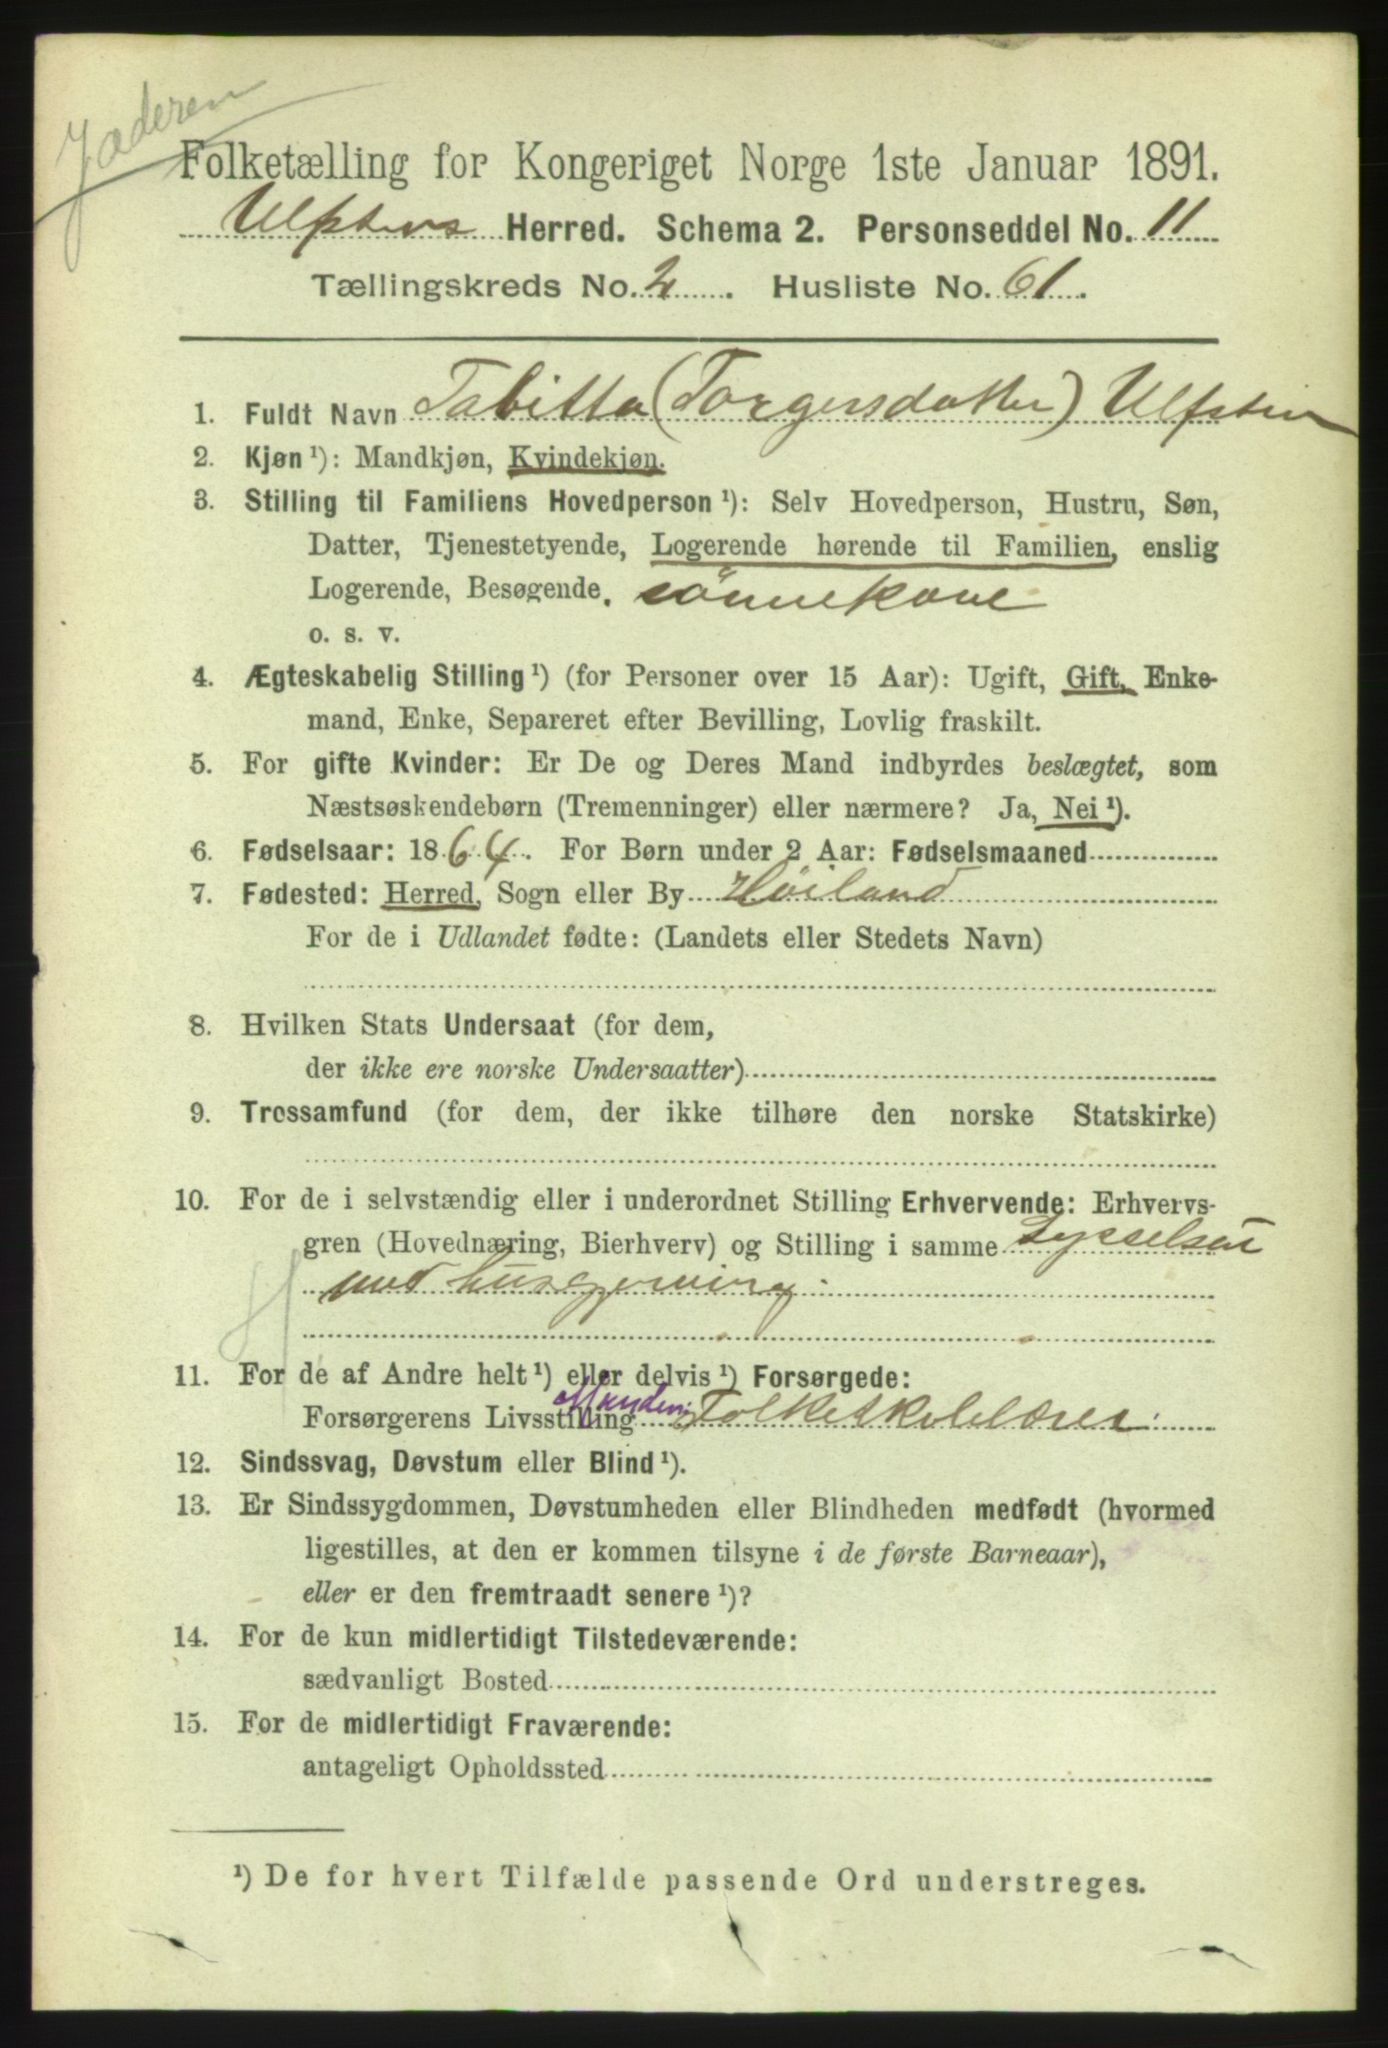 Jæderen
Folketælling for Kongeriget Norge 1ste Januar 1891.
Ulfstens Herred. Schema 2. Personseddel No. 11
Tællingskreds No. 2. Husliste No. 61.
1. Fuldt Navn Tabitta (Torgersdatter) Ulfsten
2. Kjøn ¹): Mandkjøn, Kvindekjøn.
3. Stilling til Familiens Hovedperson ¹): Selv Hovedperson, Hustru, Søn,
Datter, Tjenestetyende, Logerende hørende til Familien, enslig
Logerende, Besøgende. sönnekone
o. s. v.
4. Ægteskabelig Stilling ¹) (for Personer over 15 Aar): Ugift, Gift, Enke-
mand, Enke, Separeret efter Bevilling, Lovlig fraskilt.
5. For gifte Kvinder: Er De og Deres Mand indbyrdes beslægtet, som
Næstsøskendebørn (Tremenninger) eller nærmere? Ja, Nei ¹).
6. Fødselsaar: 1864. For Børn under 2 Aar: Fødselsmaaned
7. Fødested: Herred, Sogn eller By Höiland
For de i Udlandet fødte: (Landets eller Stedets Navn)
8. Hvilken Stats Undersaat (for dem,
der ikke ere norske Undersaatter)
9. Trossamfund (for dem, der ikke tilhøre den norske Statskirke)
10. For de i selvstændig eller i underordnet Stilling Erhvervende: Erhvervs-
gren (Hovednæring, Bierhverv) og Stilling i samme Sysselsat
med husgjerning.
11. For de af Andre helt ¹) eller delvis ¹) Forsørgede:
Forsørgerens Livsstilling Manden: Folkeskolelærer
12. Sindssvag, Døvstum eller Blind ¹).
13. Er Sindssygdommen, Døvstumheden eller Blindheden medfødt (hvormed
ligestilles, at den er kommen tilsyne i de første Barneaar),
eller er den fremtraadt senere ¹)?
14. For de kun midlertidigt Tilstedeværende:
sædvanligt Bosted
15. For de midlertidigt Fraværende:
antageligt Opholdssted
¹) De for hvert Tilfælde passende Ord understreges.